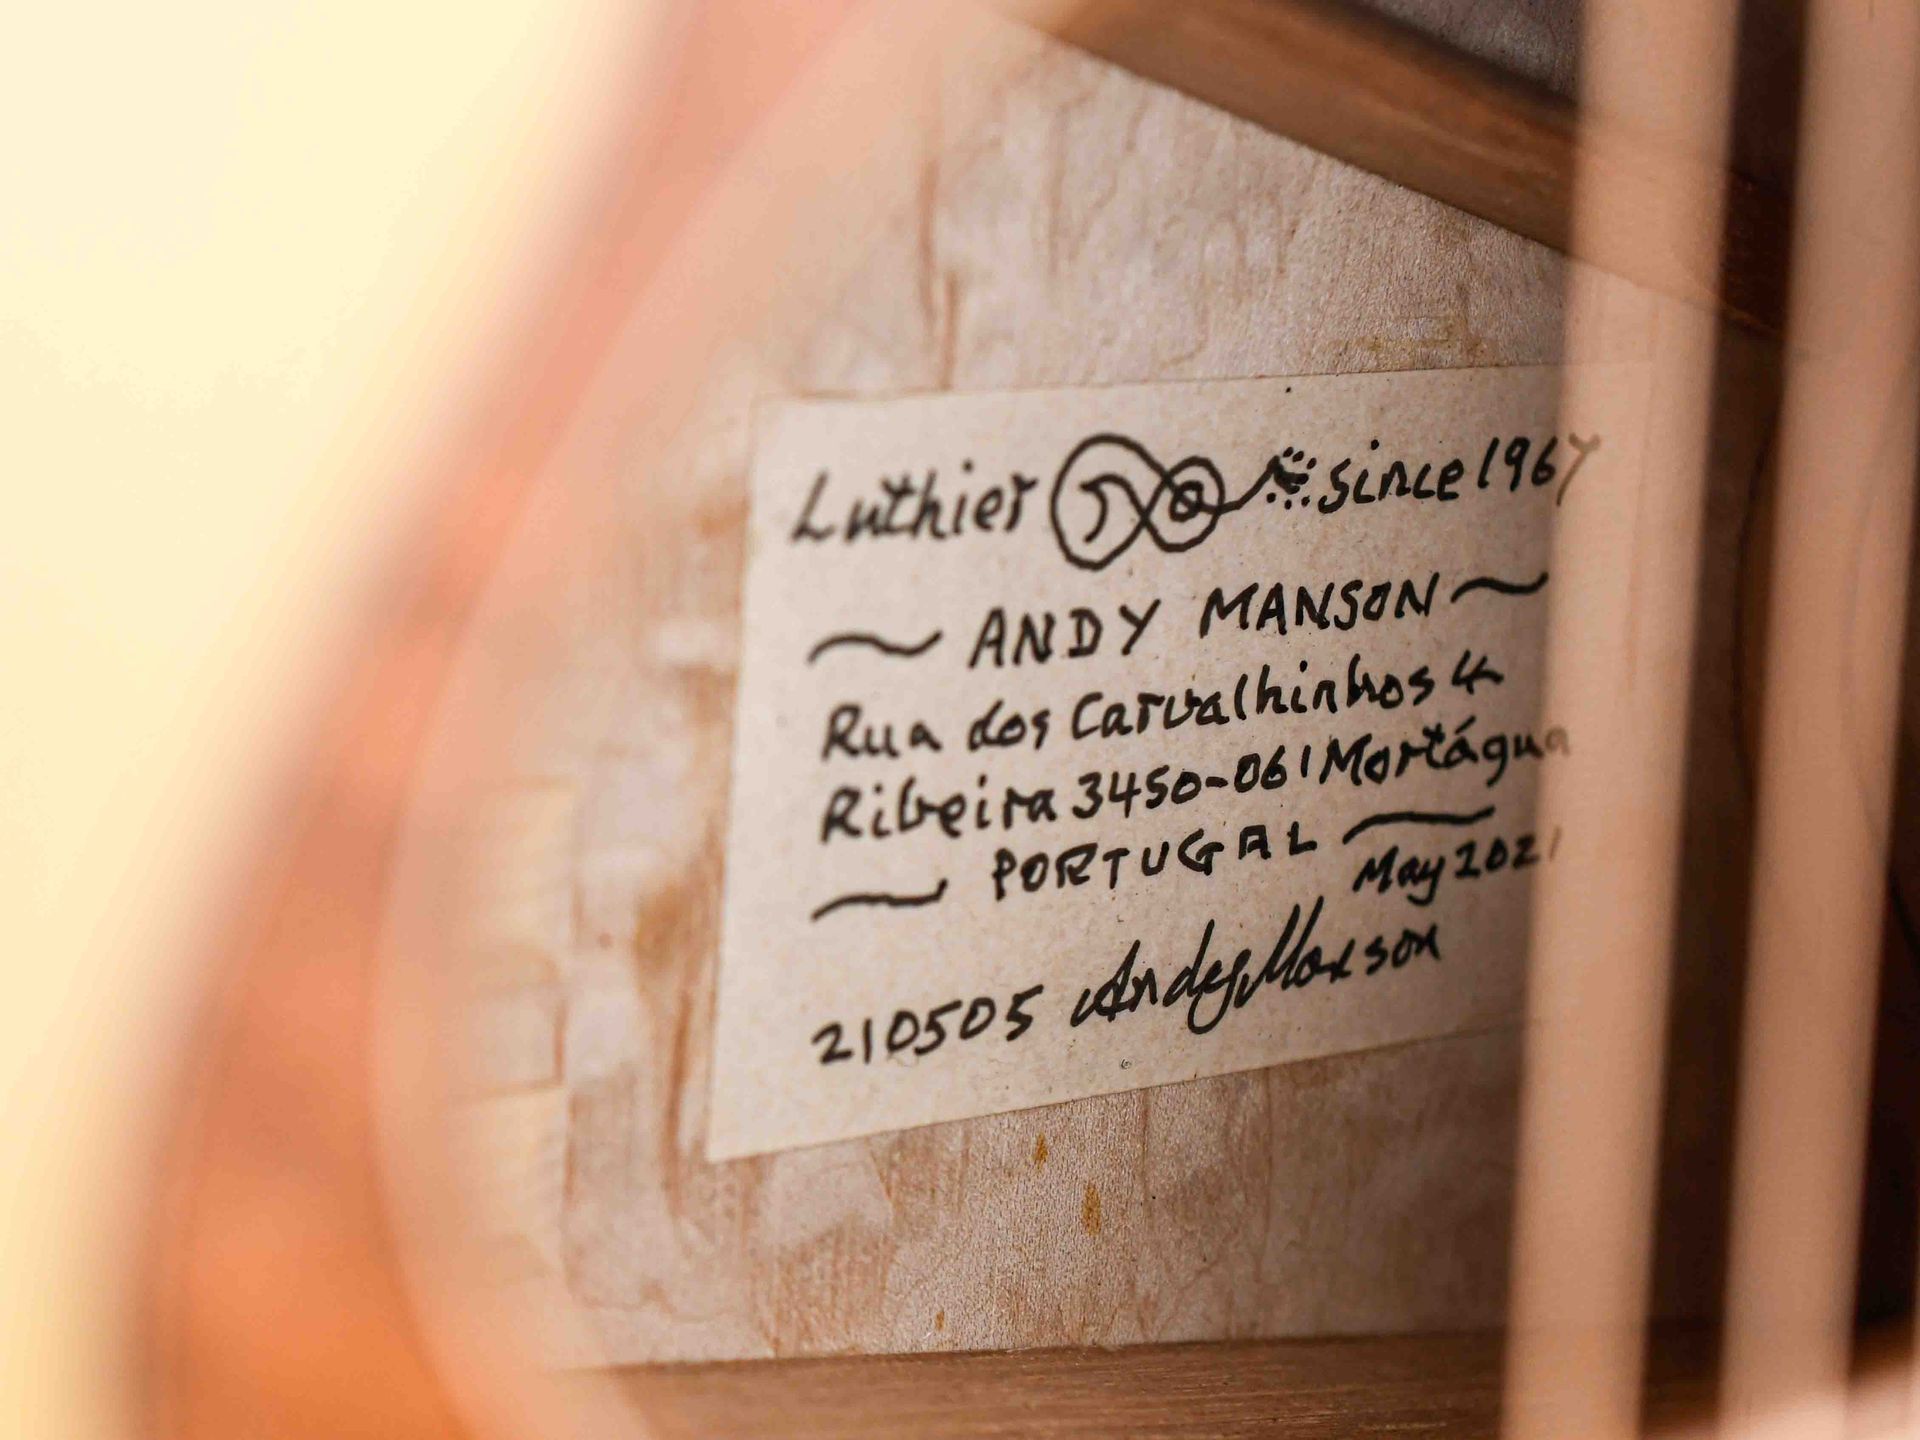 Luthier since 1967
~ ANDY MANSON ~
Rua dos Carvalhinhos 4
Ribeira 3450-061 Mortágua
~ PORTUGAL ~
May 2021
210505 Andy Manson